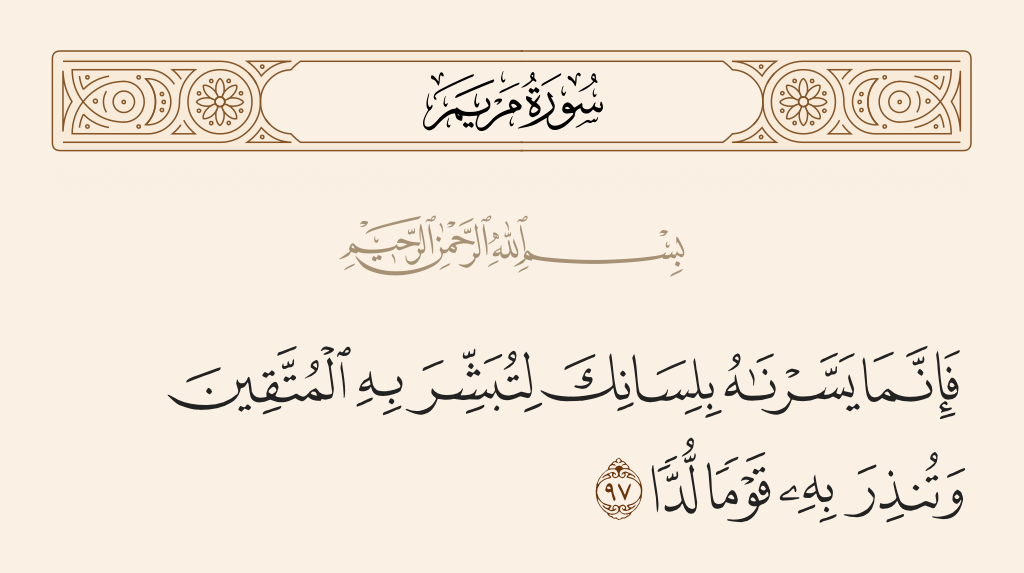 سُورَةُ مَرْيَمَ
بِسْمِ ٱللَّهِ ٱلرَّحْمَٰنِ ٱلرَّحِيمِ
فَإِنَّمَا يَسَّرْنَٰهُ بِلِسَانِكَ لِتُبَشِّرَ بِهِ ٱلْمُتَّقِينَ
وَتُنذِرَ بِهِۦ قَوْمًا لُّدًّا ٩٧